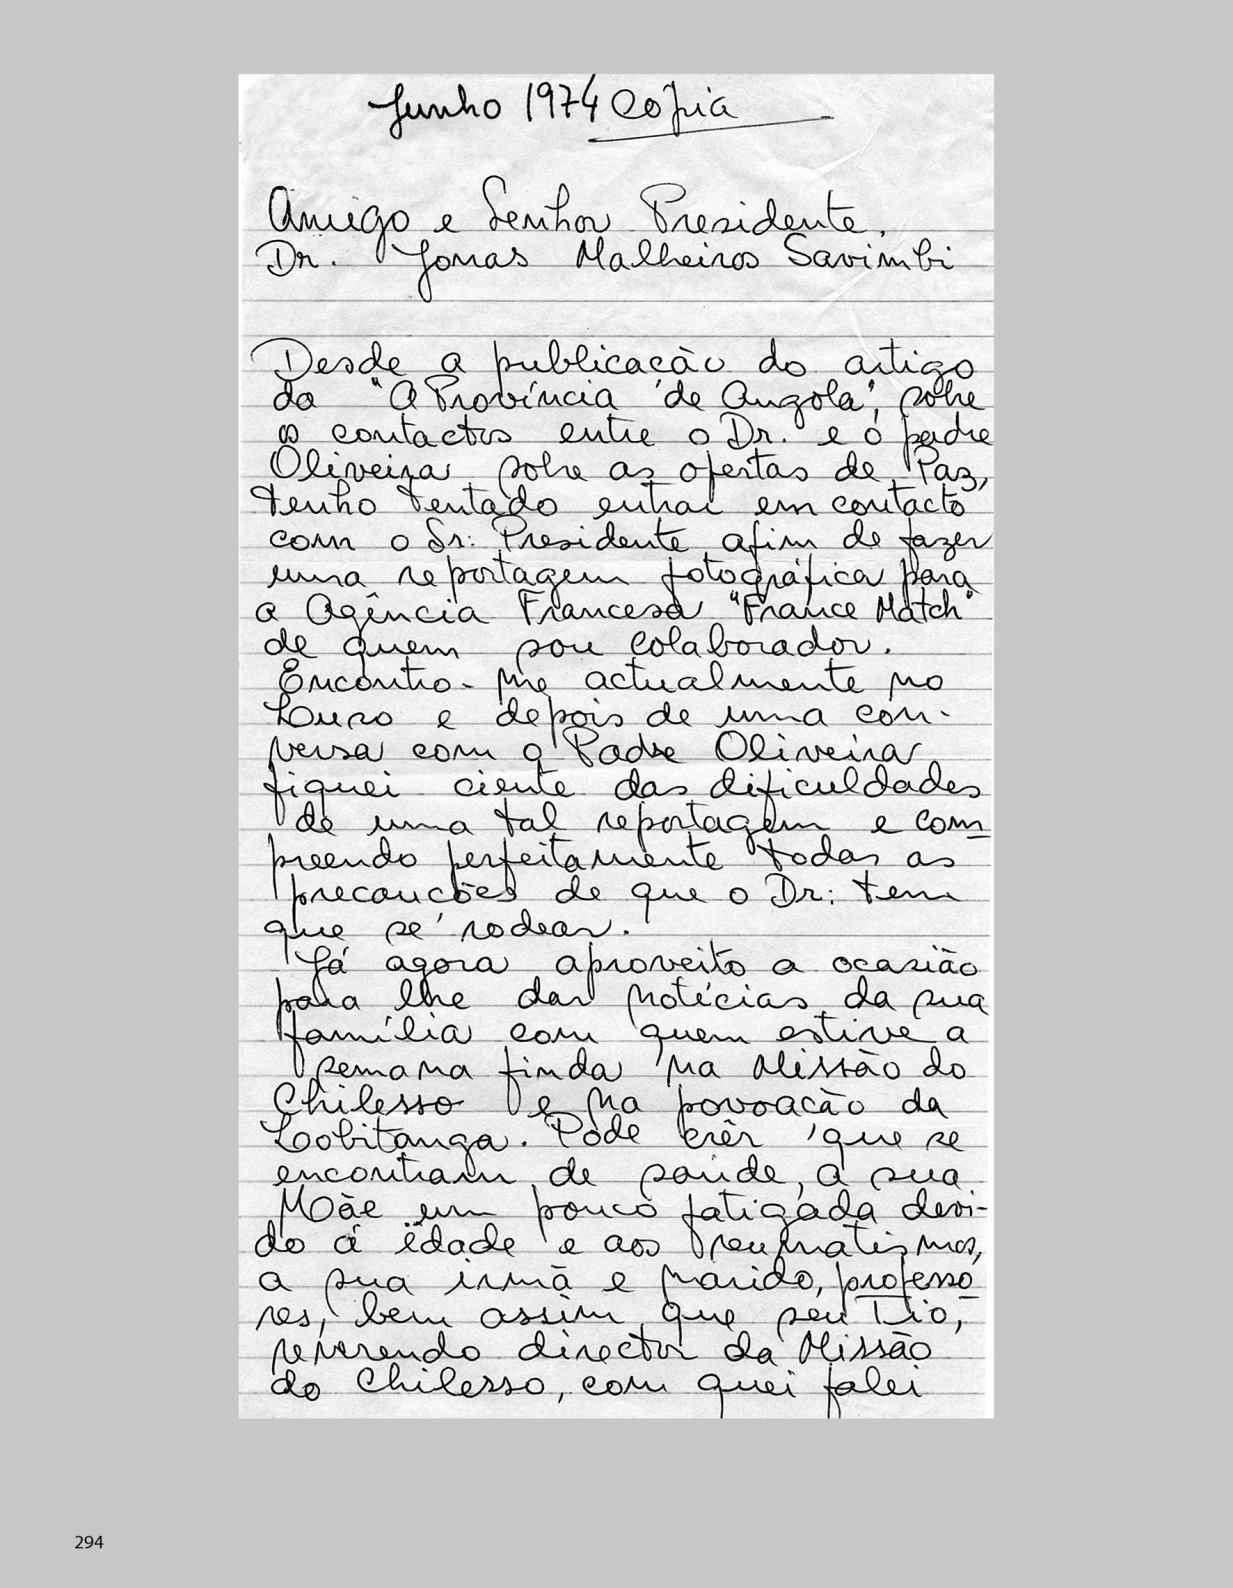 Junho 1974 Cópia
Amigo e Senhor Presidente,
Dr. Jonas Malheiros Savimbi
Desde a publicação do artigo
do "A Província de Angola", sobre
os contactos entre o Dr. e o padre
Oliveira sobre as ofertas de Paz,
tenho tentado entrar em contacto
com o Sr. Presidente afim de fazer
uma reportagem fotográfica para
a Agência Francesa "France Match"
de quem sou colaborador.
Encontro-me actualmente no
Luso e depois de uma con-
versa com o Padre Oliveira
fiquei ciente das dificuldades
de uma tal reportagem e com-
preendo perfeitamente todas as
precauções de que o Dr. tem
que se rodear.
Já agora aproveito a ocasião
para lhe dar notícias da sua
família com quem estive a
semana finda na Missão do
Chilesso e na povoação da
Lobitanga. Pode crêr que se
encontram de saúde, a sua
Mãe um pouco fatigada devi-
do á idade e aos reumatismos,
a sua irmã e marido, professo-
res, bem assim que seu Tio,
reverendo director da Missão
do Chilesso, com quei falei
294